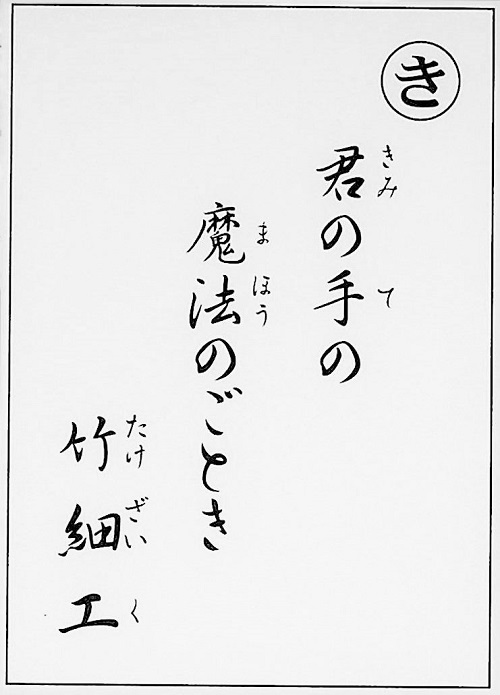 き
君の手の
きみ て
魔法のごとき
まほう
竹細工
たけざいく